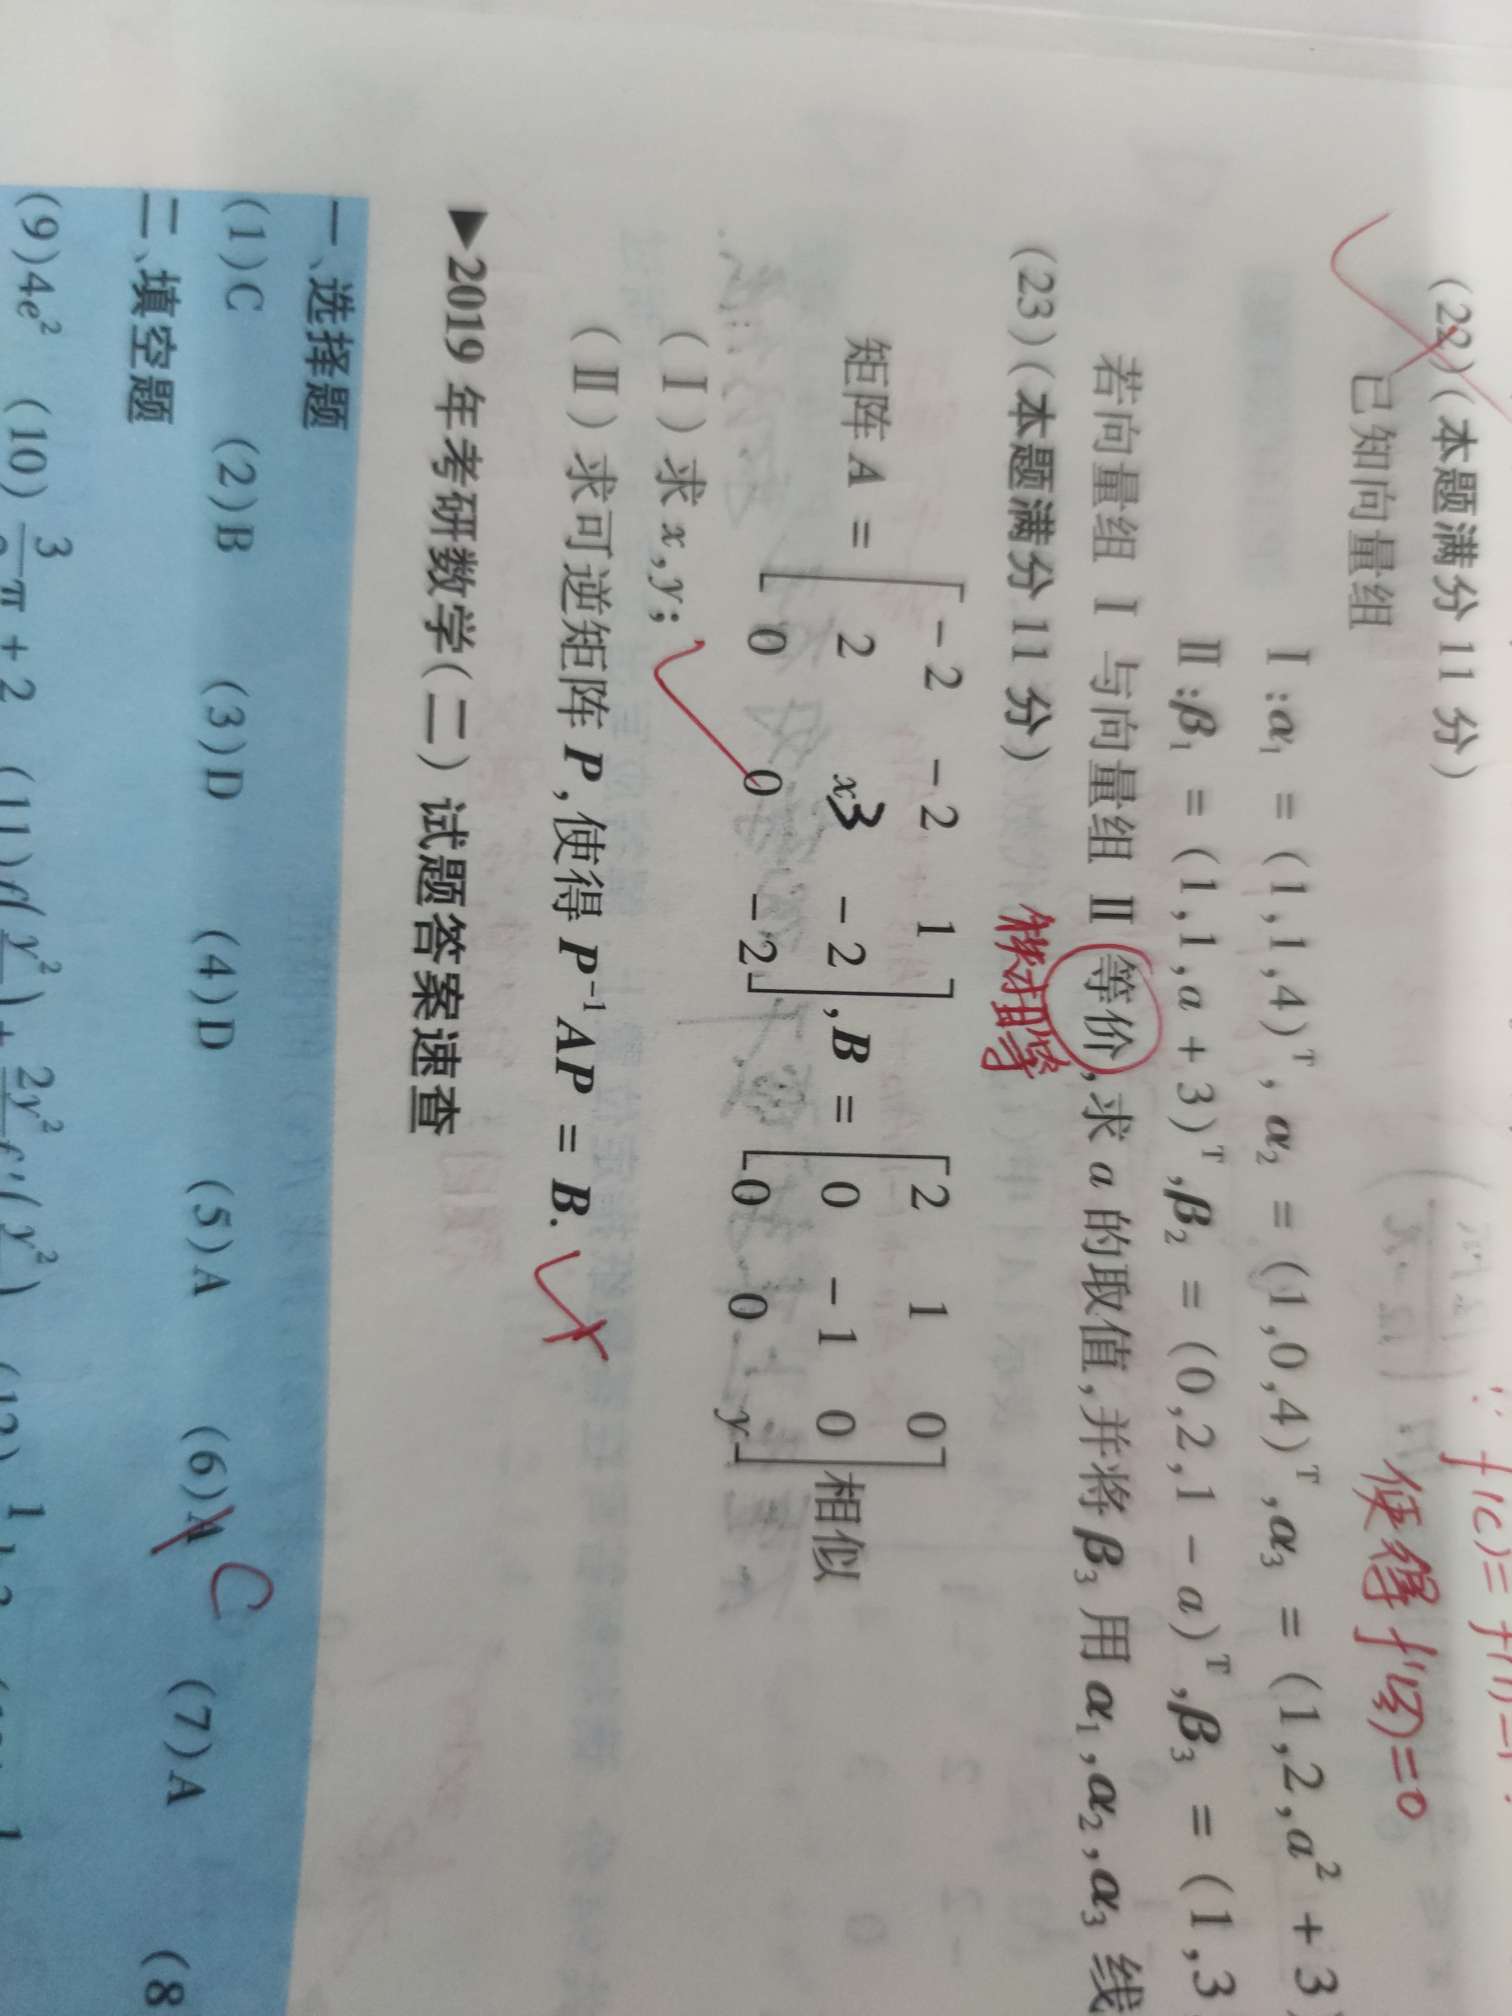 ∵ f(c)=f(1)=1
使得f'(ξ)=0
(22)(本题满分 11 分)
已知向量组
Ⅰ:α₁ = (1,1,4)ᵀ, α₂ = (1,0,4)ᵀ, α₃ = (1,2,a² + 3)
Ⅱ:β₁ = (1,1,a + 3)ᵀ, β₂ = (0,2,1 − a)ᵀ, β₃ = (1,3,
若向量组 Ⅰ 与向量组 Ⅱ 等价,求 a 的取值,并将 β₃ 用 α₁,α₂,α₃ 线
秩相等
(23)(本题满分 11 分)
矩阵 A = [−2 −2 1; 2 x −2; 0 0 −2], B = [2 1 0; 0 −1 0; 0 0 y] 相似
3
(Ⅰ) 求 x,y;
(Ⅱ) 求可逆矩阵 P,使得 P⁻¹AP = B.
▶2019 年考研数学(二) 试题答案速查
一、选择题
(1)C (2)B (3)D (4)D (5)A (6)A C (7)A (8
二、填空题
(9)4e² (10) π + 2 (11)